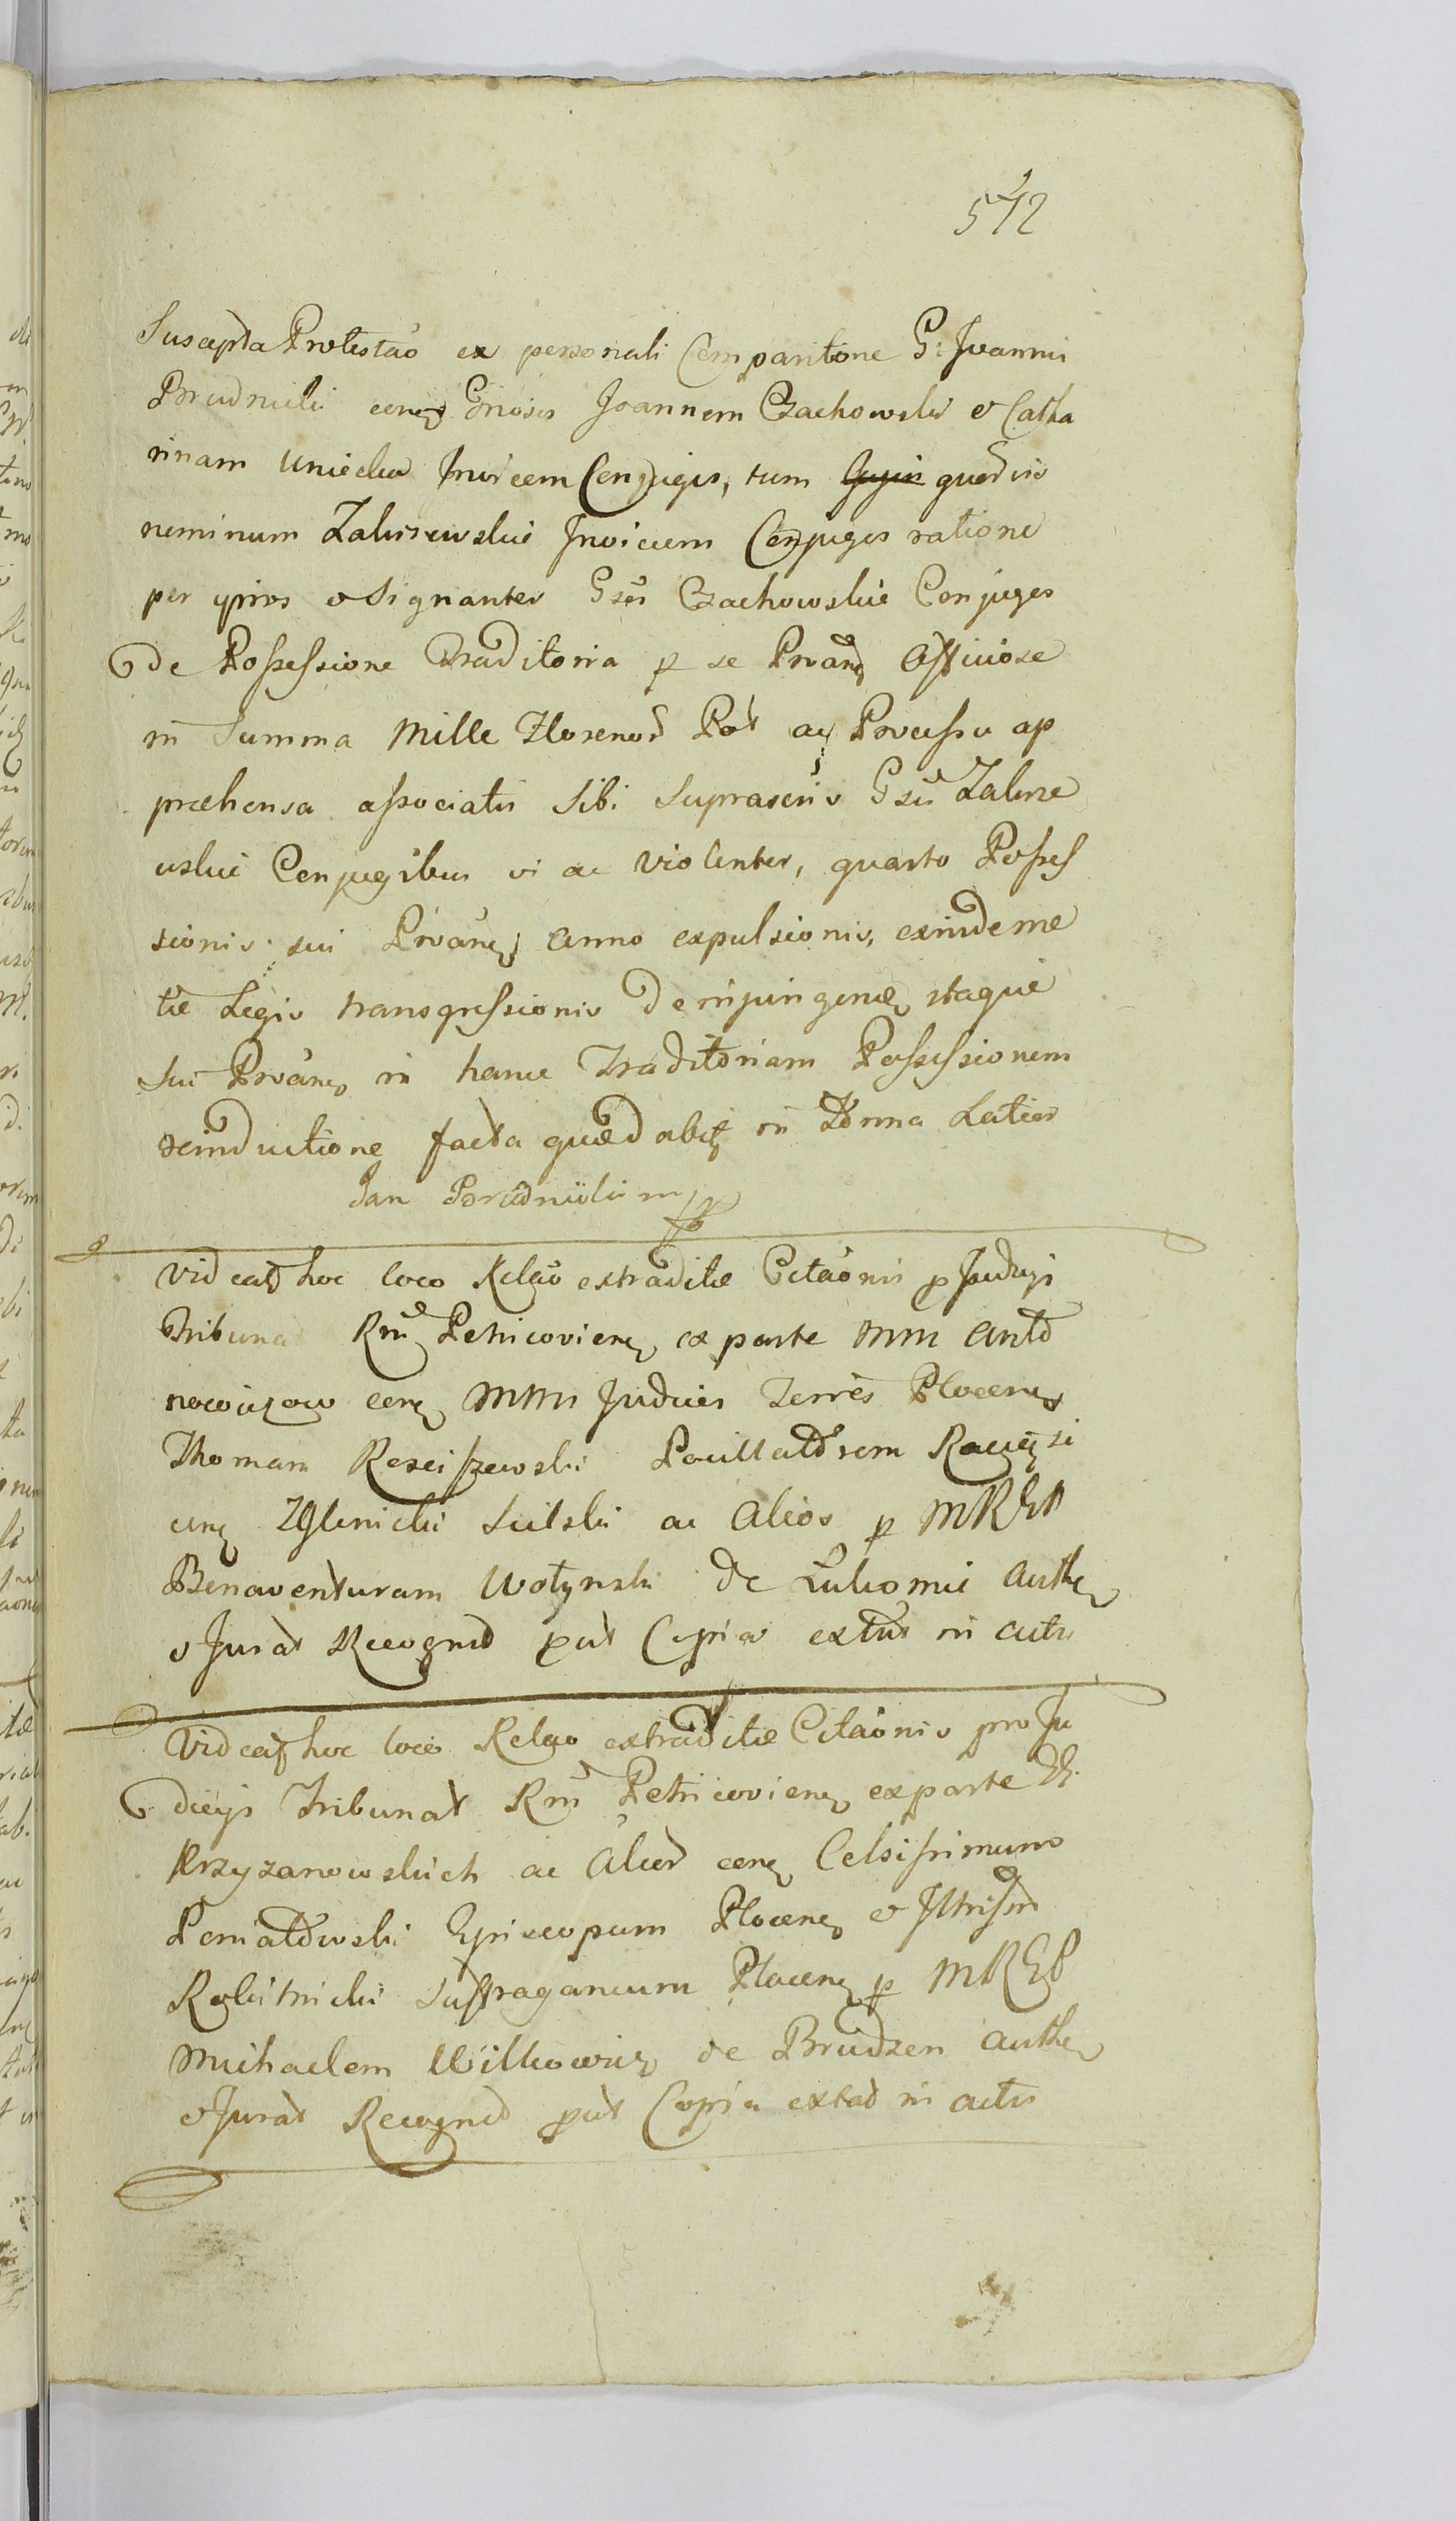 512
Suscepta Protestao ex personali Comparitione G: Joannis
Brudnicki conq Gnosos Joannem Czachowski & Catha
rinam Uniecka Invicem Conjuges, tum quosvis
nominum Zaluszewskie Invicem Conjuges ratione
per ipsos & Signanter Gsos Czachowskie Conjuges
De Possessione Traditoria p se Proanq Officiose
in Summa Mille Florenor Pol aq Processu ap
praehensa associatis Sibi Suprascris Gsis Zalusz
ewskie Conjugibus vi ac violenter, quarto Posses
sionis sui Proanq anno expulsionis, exindeme
tie Legis transgressionis De injungenq itaque
Sui Proanq in hanc Traditoriam Possessionem
reinductione facta quaed abitq in Forma Latior
Jan Brudnicki mp
Videatq hoc loco Relao extraditae Citaonis p Judicijs
Tribunal Rni Petricovienq ex parte MM Anto
nowiczow conq MMm Judicem Terres Plocenq
Thomam Kosciszewski Pocillatorem Raciązi
enq Zglinicki Sulski ac Alios p MREP
Bonaventuram Wołynski de Lukomie Authq
& Jurat Recognd put Copia extat in actis
Videatq hoc loco Relao extraditae Citaonis pro Ju
dicijs Tribunal Rni Petricovienq ex parte
Krzyzanowskich ac Alior conq Celsissimum
Poniatowski Episcopum Plocenq & Illrissm
Rokitnicki Suffraganeum Plocenq p MREP
Michaelem Witkowicz de Brudzen Authq
& Jurat Recognd put Copia extat in actis